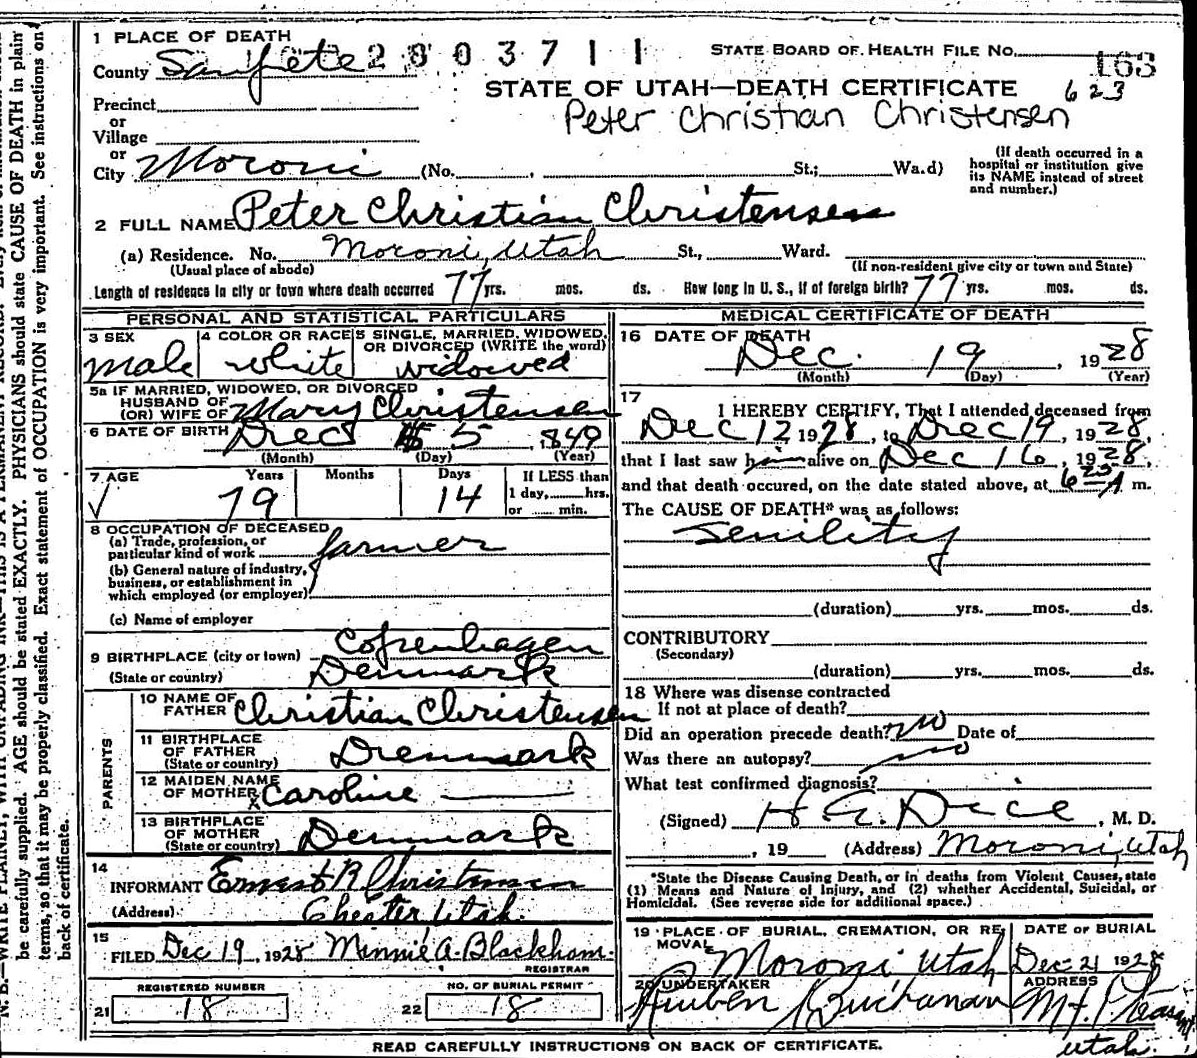 1 PLACE OF DEATH
County Sanpete 2803711
STATE BOARD OF HEALTH FILE No. 163
STATE OF UTAH—DEATH CERTIFICATE 623
Peter Christian Christensen
Precinct
or
Village
or
City Moroni (No. , St.; Wa.d)
(If death occurred in a
hospital or institution give
its NAME instead of street
and number.)
2 FULL NAME Peter Christian Christensen
(a) Residence. No. Moroni, Utah St., Ward.
(Usual place of abode) (If non-resident give city or town and State)
Length of residence in city or town where death occurred 77 yrs. mos. ds. How long in U. S., if of foreign birth? 77 yrs. mos. ds.
PERSONAL AND STATISTICAL PARTICULARS
3 SEX 4 COLOR OR RACE 5 SINGLE, MARRIED, WIDOWED,
OR DIVORCED (WRITE the word)
male white widowed
5a IF MARRIED, WIDOWED, OR DIVORCED
HUSBAND OF
(OR) WIFE OF Mary Christensen
6 DATE OF BIRTH Dec 5, 1849
(Month) (Day) (Year)
7 AGE Years Months Days If LESS than
79 14 1 day, hrs.
or min.
8 OCCUPATION OF DECEASED
(a) Trade, profession, or
particular kind of work farmer
(b) General nature of industry,
business, or establishment in
which employed (or employer)
(c) Name of employer
9 BIRTHPLACE (city or town) Copenhagen
(State or country) Denmark
PARENTS
10 NAME OF
FATHER Christian Christensen
11 BIRTHPLACE
OF FATHER
(State or country) Denmark
12 MAIDEN NAME
OF MOTHER Caroline
13 BIRTHPLACE
OF MOTHER
(State or country) Denmark
14
INFORMANT Ernest R Christensen
(Address) Chester, Utah.
15
FILED Dec 19, 1928 Minnie A. Blackham.
REGISTRAR
REGISTERED NUMBER
21 18
NO. OF BURIAL PERMIT
22 18
MEDICAL CERTIFICATE OF DEATH
16 DATE OF DEATH
Dec. 19, 1928
(Month) (Day) (Year)
17
I HEREBY CERTIFY, That I attended deceased from
Dec 12 1928, to Dec 19, 1928,
that I last saw him alive on Dec 16, 1928,
and that death occured, on the date stated above, at 6 25 A m.
The CAUSE OF DEATH* was as follows:
Senility
(duration) yrs. mos. ds.
CONTRIBUTORY
(Secondary)
(duration) yrs. mos. ds.
18 Where was disease contracted
If not at place of death?
Did an operation precede death? no Date of
Was there an autopsy? no
What test confirmed diagnosis?
(Signed) H. E. Dice, M. D.
, 19 (Address) Moroni, Utah
*State the Disease Causing Death, or in deaths from Violent Causes, state
(1) Means and Nature of Injury, and (2) whether Accidental, Suicidal, or
Homicidal. (See reverse side for additional space.)
19 PLACE OF BURIAL, CREMATION, OR RE-
MOVAL DATE OF BURIAL
Moroni Utah Dec 21 1928
20 UNDERTAKER ADDRESS
Reuben Buchanan Mt. Pleasant
Utah.
READ CAREFULLY INSTRUCTIONS ON BACK OF CERTIFICATE.
be carefully supplied. AGE should be stated EXACTLY. PHYSICIANS should state CAUSE OF DEATH in plain
terms, so that it may be properly classified. Exact statement of OCCUPATION is very important. See instructions on
back of certificate.